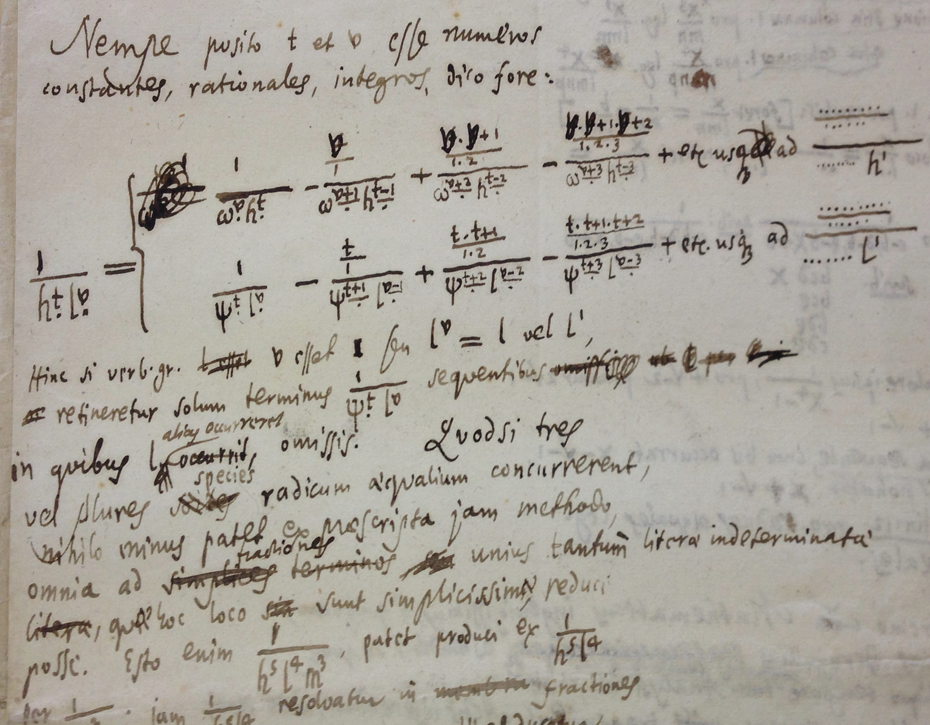 Nempe posito t et v esse numeros
constantes, rationales, integros, dico fore:
1/(h^t l^v) = { 1/(ω^v h^t) − (v/1)/(ω^{v+1} h^{t−1}) + (v.v+1/1.2)/(ω^{v+2} h^{t−2}) − (v.v+1.v+2/1.2.3)/(ω^{v+3} h^{t−3}) + etc. usque ad ....../h'
1/(ψ^t l^v) − (t/1)/(ψ^{t+1} l^{v−1}) + (t.t+1/1.2)/(ψ^{t+2} l^{v−2}) − (t.t+1.t+2/1.2.3)/(ψ^{t+3} l^{v−3}) + etc. usq; ad ....../l'
Hinc si verb. gr. v esset 1 seu l^v = l vel l',
retineretur solum terminus 1/(ψ^t l^v) sequentibus
in quibus l alias occurreret, omissis. Quodsi tres
vel plures species radicum aequalium concurrerent,
nihilo minus patet ex praescripta jam methodo,
omnia ad fractiones unius tantum litera indeterminata
, quae hoc loco sunt simplicissima, reduci
posse. Esto enim 1/(h^5 l^4 m^3), patet produci ex 1/(h^5 l^4)
per jam resolvatur in fractiones